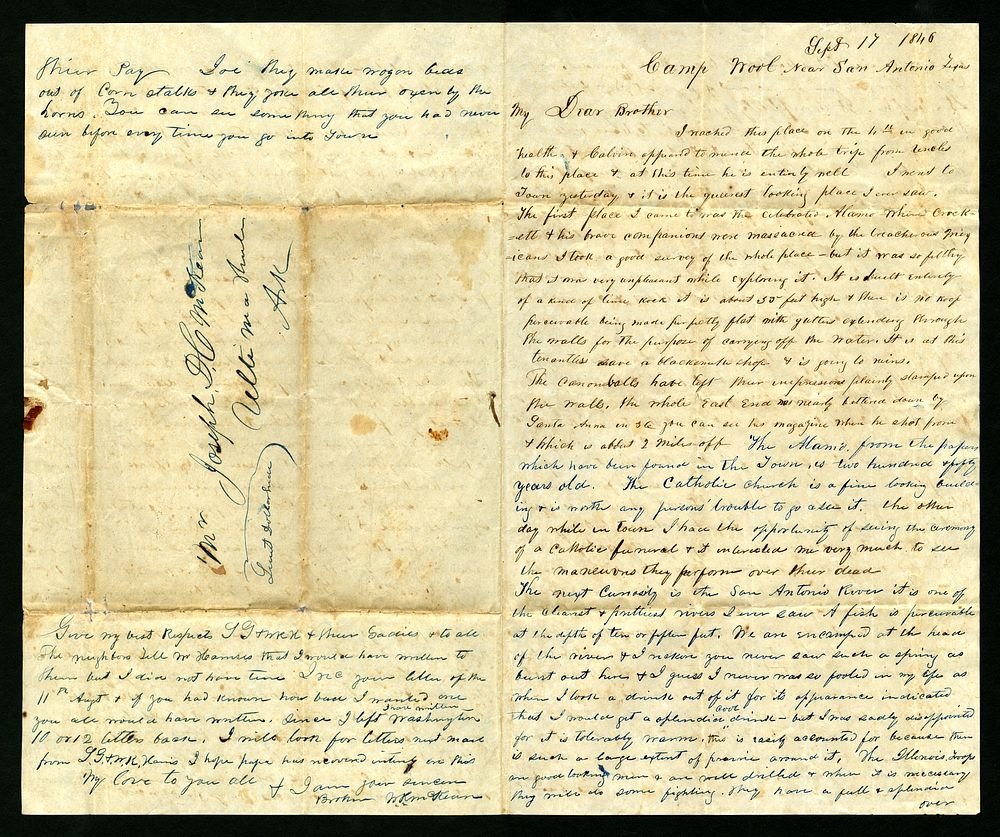 Sept 17 1846
Camp Wool Near San Antonio Texas
My Dear Brother
I reached this place on the 4th in good
health, & Calvin appeared to mend the whole trip from Uncles
to this place & at this time he is entirely well I went to
Town yesterday & it is the queerest looking place I ever saw.
The first place I came to was the celebrated Alamo Where Crock-
ett & his brave companions were massacred by the treacherous Mex
icans I took a good survey of the whole place - but it was so filthy
that it was very unpleasant while exploring it. It is built entirely
of a kind of lime rock it is about 35 feet high & there is no roof
perceivable being made perfectly flat with gutters extending through
the walls for the purpose of carrying off the water. It is at this
tenantless save a blacksmith shop & is going to ruins.
The canonballs have left their impressions plainly stamped upon
the walls. the whole East End was nearly battered down by
Santa Anna in 36 you can see his magazine when he shot from
& which is about 2 miles off The Alamo, from the papers
which have been found in the Town, is two hundred & fifty
years old. The Catholic church is a fine looking build-
ing & is worth any persons' trouble to go & see it. the other
day while in town I had the opportunity of seeing the ceremony
of a Catholic funeral & it interested me very much to see
the manoeuvres they perform over their dead
The next Curiosity is the San Antonio River it is one of
the clearest & prettiest rivers I ever saw A fish is perceivable
at the depth of ten or fifteen feet. We are encamped at the head
of the river & I reckon you never saw such a spring as
burst out here, & I guess I never was so fooled in my life as
when I took a drink out of it for its appearance indicated
that I would get a splendid cool drink - but I was sadly disappointed
for it is tolerably warm, this is easily accounted for because there
is such a large extent of prairie around it. The Illinois troops
are good looking men & are well drilled & when it is necessary
they will do some fighting. They have a full & splendid
over
their Pay Joe they make wagon beds
out of Corn stalks & they yoke all their oxen by the
horns. You can see something that you had never
seen before every time you go into Town
Mr Joseph D. C. McKean
Ultima Thule
Ark
Give my best Respects S G & WKH & their Ladies & to all
the neighbors Tell Mr Harris that I would have written to
them but I did not have time I rec your letter of the
11th Augt & if you had known how bad I wanted one
you all would have written. Since I left Washington I have written
10 or 12 letters back. I will look for letters next mail
from S G & WK Harris I hope papa has recovered entirely ere this
My love to you all & I am your sincere
Brother W K McKean